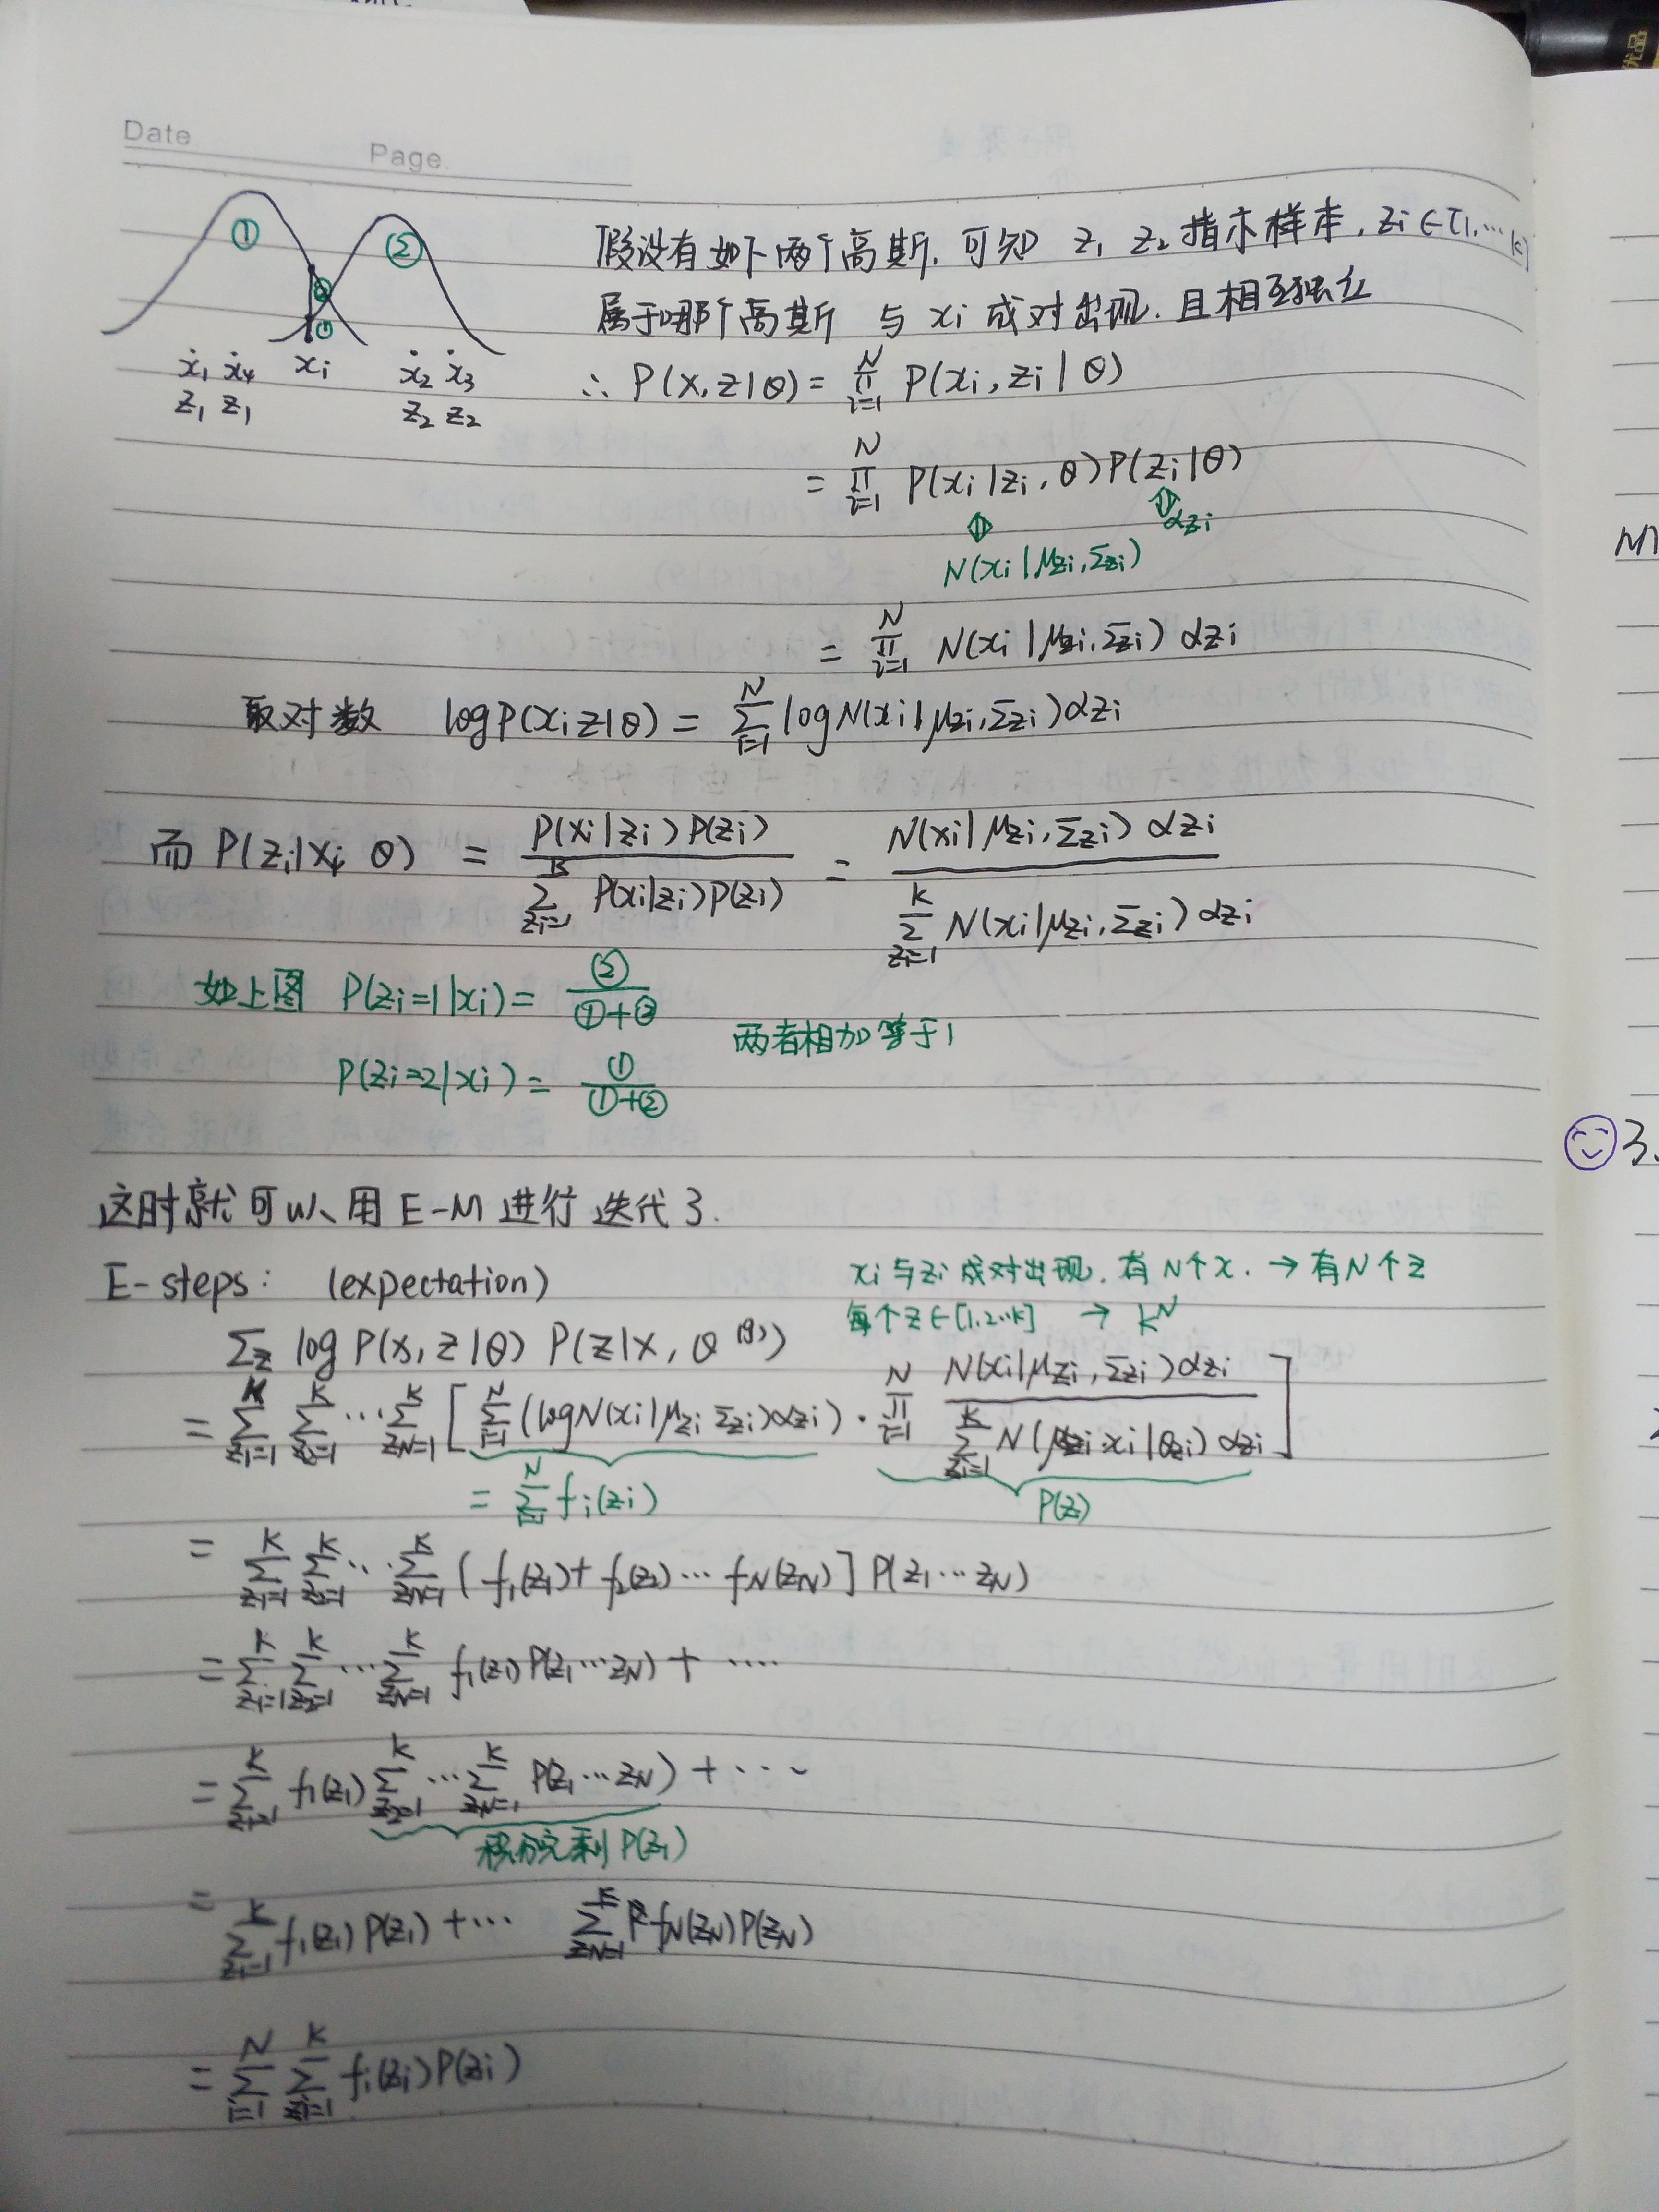 Date
Page.
① ②
② ①
x₁ x₄ xᵢ x₂ x₃
z₁ z₁ z₂ z₂
假设有如下两个高斯. 可知 z₁ z₂ 指示样本, zᵢ∈[1,…k]
属于哪个高斯 与 xᵢ 成对出现. 且相互独立
∴ P(x,z|θ) = ∏_{i=1}^{N} P(xᵢ, zᵢ | θ)
= ∏_{i=1}^{N} P(xᵢ|zᵢ, θ) P(zᵢ|θ)
α_{zᵢ}
N(xᵢ | μ_{zᵢ}, Σ_{zᵢ})
= ∏_{i=1}^{N} N(xᵢ | μ_{zᵢ}, Σ_{zᵢ}) α_{zᵢ}
取对数 log P(x, z|θ) = ∑_{i=1}^{N} log N(xᵢ | μ_{zᵢ}, Σ_{zᵢ}) α_{zᵢ}
而 P(zᵢ|xᵢ, θ) = P(xᵢ|zᵢ) P(zᵢ) / ∑_{zᵢ=1}^{k} P(xᵢ|zᵢ) P(zᵢ) = N(xᵢ | μ_{zᵢ}, Σ_{zᵢ}) α_{zᵢ} / ∑_{zᵢ=1}^{k} N(xᵢ | μ_{zᵢ}, Σ_{zᵢ}) α_{zᵢ}
如上图 P(zᵢ=1|xᵢ) = ② / ①+②
两者相加等于1
P(zᵢ=2|xᵢ) = ① / ①+②
这时就可以用 E-M 进行迭代了.
E-steps: (expectation)
xᵢ与zᵢ成对出现. 有N个x. → 有N个z
每个z∈[1,2…k] → k^N
∑_z log P(x, z|θ) P(z|x, θ^{(g)})
= ∑_{z₁=1}^{K} ∑_{z₂=1}^{K} … ∑_{z_N=1}^{K} [ ∑_{i=1}^{N} (log N(xᵢ | μ_{zᵢ} Σ_{zᵢ}) α_{zᵢ}) · ∏_{i=1}^{N} N(xᵢ | μ_{zᵢ}, Σ_{zᵢ}) α_{zᵢ} / ∑_{zᵢ=1}^{K} N(xᵢ | θ_{zᵢ}) α_{zᵢ} ]
= ∑_{i=1}^{N} fᵢ(zᵢ)
P(z)
= ∑_{z₁=1}^{K} ∑_{z₂=1}^{K} … ∑_{z_N=1}^{K} [ f₁(z₁) + f₂(z₂) … f_N(z_N) ] P(z₁…z_N)
= ∑_{z₁=1}^{K} ∑_{z₂=1}^{K} … ∑_{z_N=1}^{K} f₁(z₁) P(z₁…z_N) + ….
= ∑_{z₁=1}^{K} f₁(z₁) ∑_{z₂=1}^{K} … ∑_{z_N=1}^{K} P(z₁…z_N) + …
积分完剩 P(z₁)
= ∑_{z₁=1}^{K} f₁(z₁) P(z₁) + … ∑_{z_N=1}^{K} f_N(z_N) P(z_N)
= ∑_{i=1}^{N} ∑_{zᵢ=1}^{K} fᵢ(zᵢ) P(zᵢ)
M
3.
优品